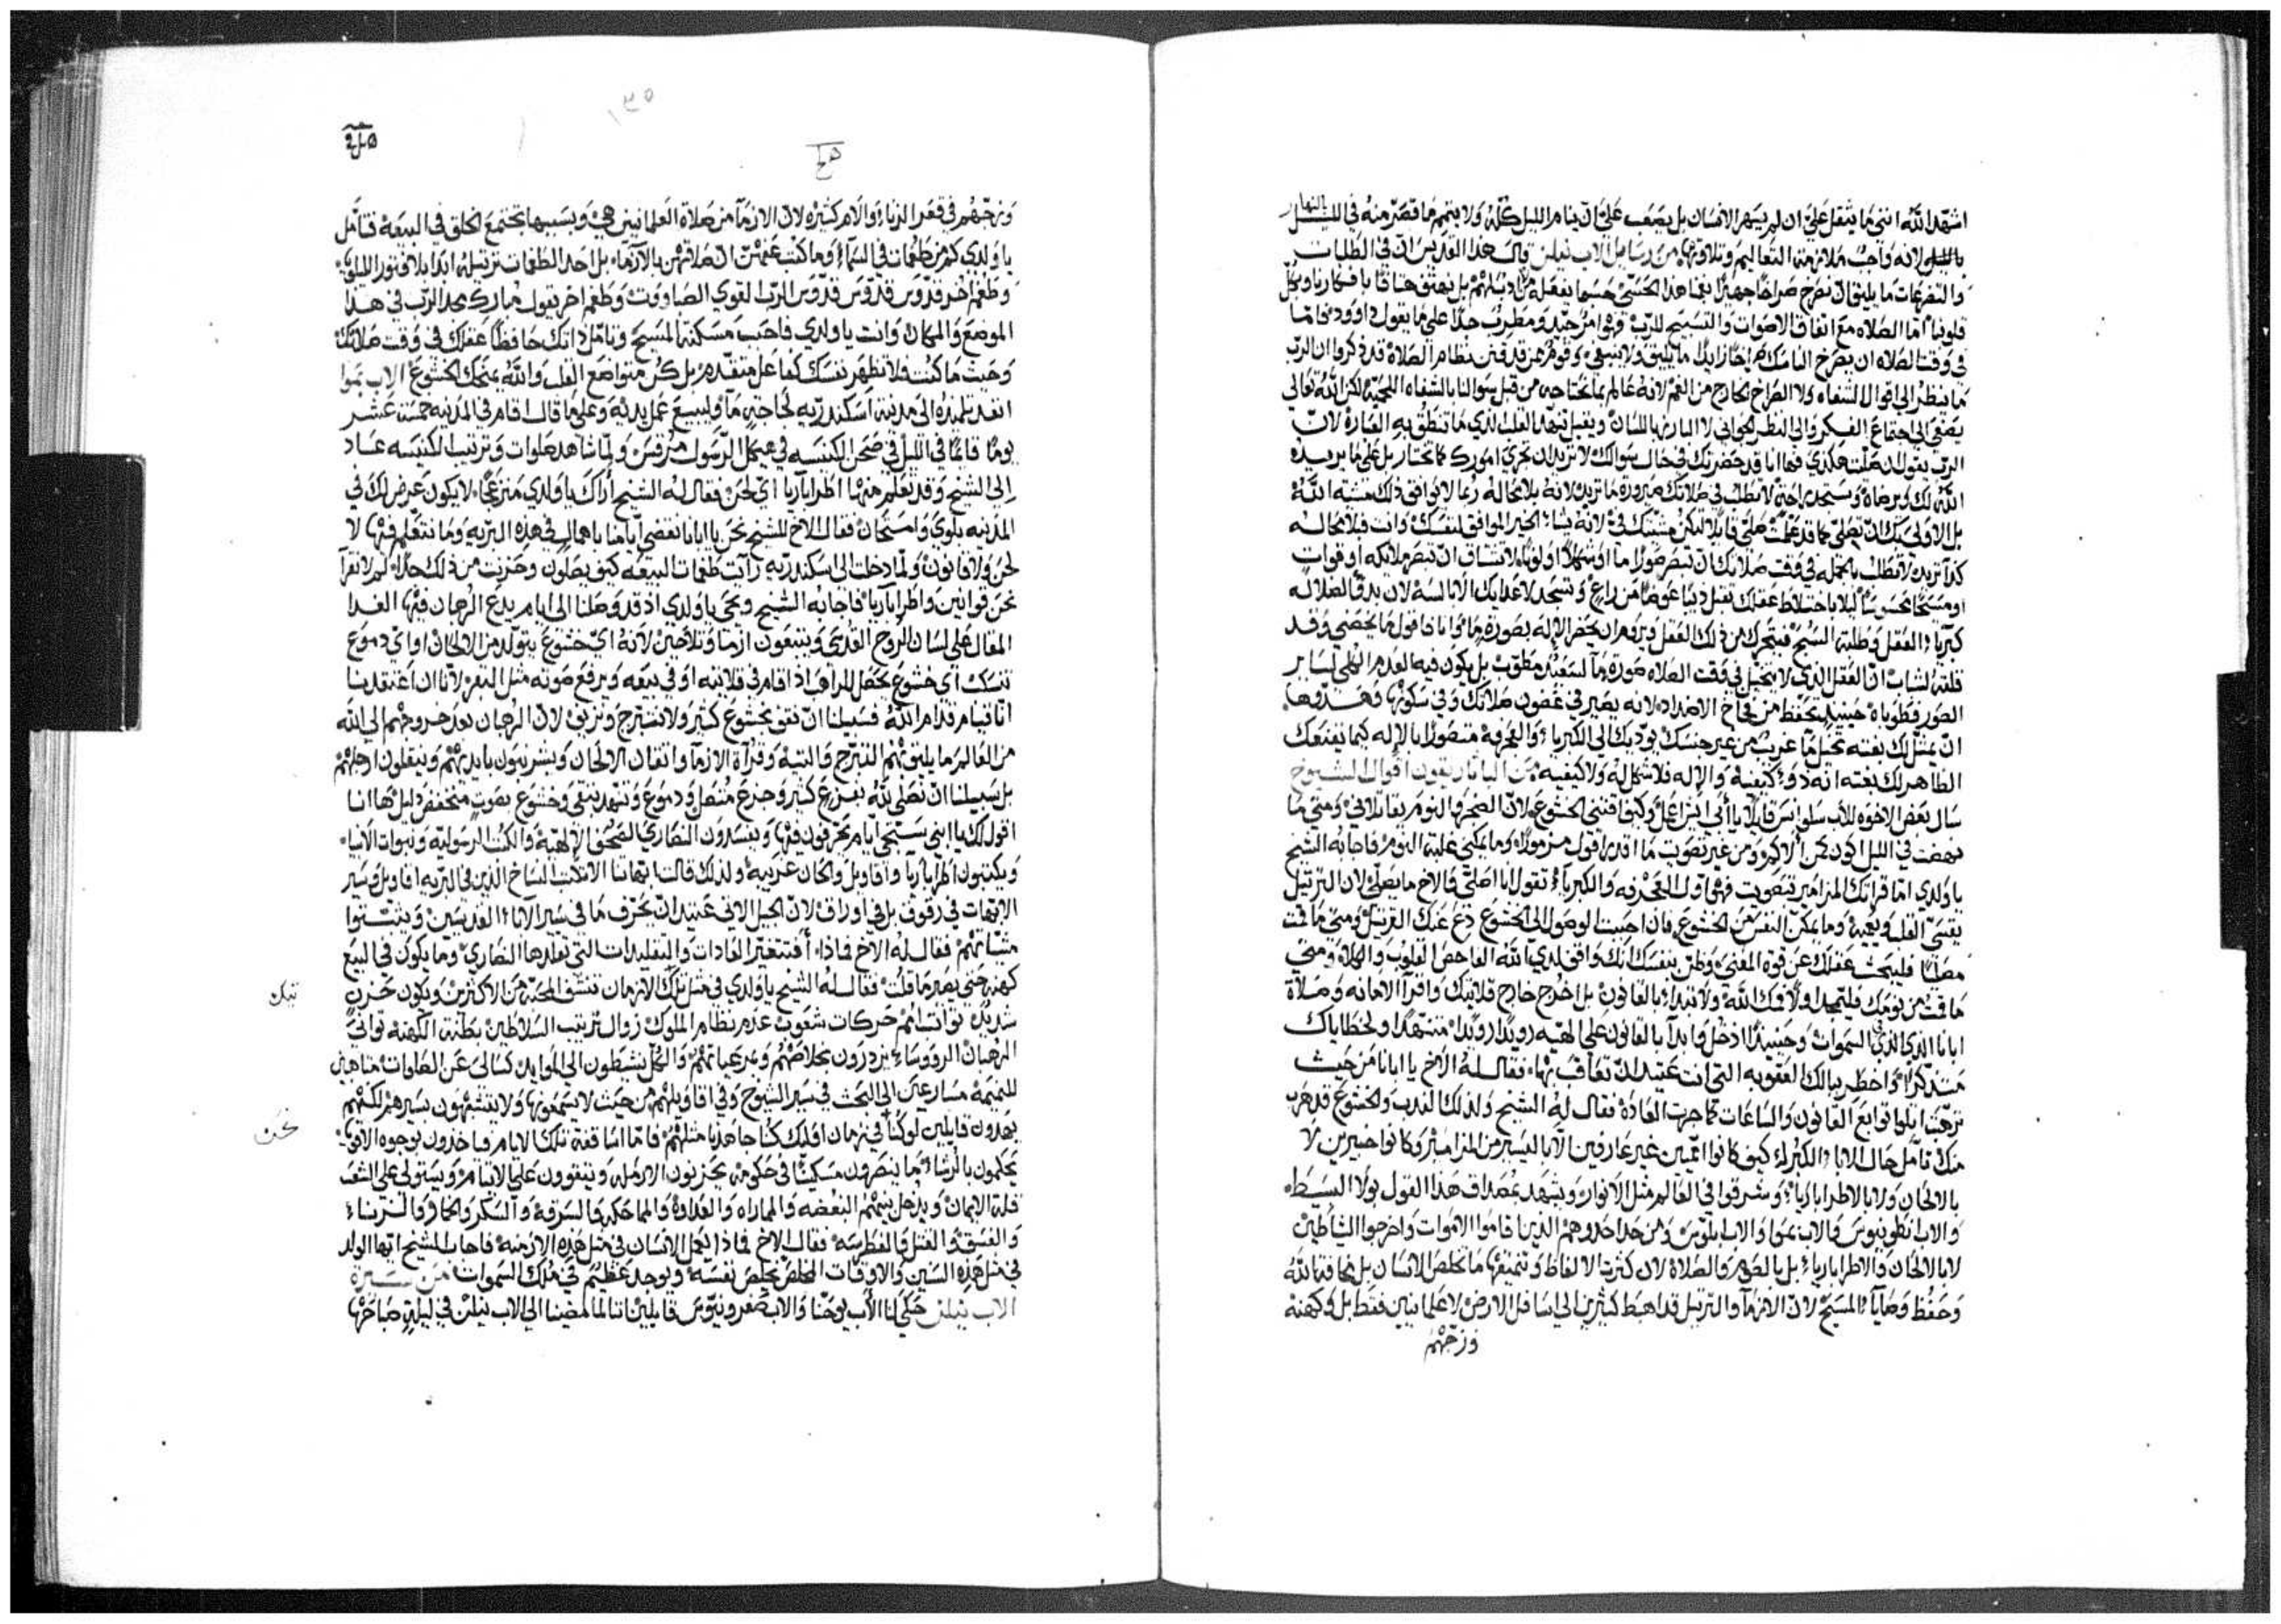 اشهد الله انني ما يثقل عليّ ان لم يسهر الانسان بل يصعب عليّ ان ينام الليل كله ولا يتمم ما قصر منه في الليل
بالنهار
لانه واجب ملازمة التعاليم وتلاوتها من رسايل الاب نيلن قال هذا القديس ان في الطلبات
والتضرعات ما يليق ان نصرخ صراخا جهيرا
قلوبنا امّا الصلاه مع اتفاق الاصوات والتسبيح للرب فهو امر جيد ومطرب جدا على ما يقول داوود فامّا
في وقت الصلاه ان يصرخ الناسك ما يليق ولا ينبغي وقوم من قد فتن نظام الصلاة قد ذكروا ان الرب
ما ينظر الى اقوال الشفاه ولا الصراخ الخارج من الفم لانه عالم بما نحتاجه من قبل سوالنا بالشفاه اللحمية لكن الله تعالى
يصغى الى اجتماع الفكر والى النظر الجواني لا البارز باللسان ويقبل تنهد القلب الذي ما تنطق به العبارة لان
الرب يقول ان صلّيت هكذي فها انا قد حضرتك في حال سوالك لا تريد ان تجري امورك كما تختار بل على ما يريده
الله لك ويرضاه وستجد راحة لا تطلب في صلاتك ضرورة ما تريد لانه بلا محاله ربما لا يوافق ذلك مشية الله
بل الاولى بك ان تصلى كما قد علمت صلّي قايلا لتكن مشيتك فيّ لانه يشاء الخير الموافق لنفسك وانت فلا محاله
كذا تريد لا تطلب بالجمله في وقت صلاتك ان تبصر صورا ما او شكلا او لونا لا تشتاق ان تبصر ملايكه او قوات
او مسيحا محسوسا ليلا باختلاط عقلك تقبل ذيبا عوضا من راع وتسجد لاعدايك الابالسة لان بدو الضلاله
كبرياء العقل وطلبة السبح فيتحرك من ذلك العقل ويروم ان يحضر الاله بصورة ما وانا فاقول ما يخصني وقد
قلته لشاب ان العقل الذي لا يتخيل في وقت الصلاه صورة ما لسعيد مطوّب بل يكون فيه العدم الكلي لساير
الصور فطوباه حينيذ تحفّظ من فخاخ الاضداد لانه يصير في غضون صلاتك وفي سكونها وهدوها
ان يمثل لك بغته تخيل ما غريب من غير جنسك يودّيك الى الكبرياء والعجرفة متصورا بالاله كيما يقنعك
الظاهر لك بغته انه ذو كيفية والاله فلا شكل له ولا كيفيه من الباتاريقون اقوال الشيوخ
سال بعض الاخوه للأب سلوانس قايلا يا أبي ايش اعمل وكيف اقتني الخشوع لان الضجر والنوم يقاتلاني ومتى ما
نهضت في الليل اكون من غير تصويت ما اقدر اقول مزمورا وما يمكني غلبة النوم فاجابه الشيخ
يا ولدي امّا قراتك المزامير بتصويت فهو اول العجرفه والكبرياء تقول انا اصلّي والاخ ما يصلّي لان الترتيل
يقسّي القلب ويعميه وما يمكن النفس من الخشوع فان احببت الوصول الى الخشوع دع عنك الترتيل ومتى ما قمت
مصليا فليبحث عقلك عن قوة المعنى وظنّ بنفسك انك واقف لدي الله الفاحص القلوب والكلاة ومتى
ما قمت من نومك فليمجد اولا فمك الله ولا تبتدا بالقانون بل اخرج خارج قلايتك واقرا الامانه وصلاة
ابانا الذي في السموات وحينيذ ادخل وابدا بالقانون على الهيّه رويدا رويدا متنهدا ولخطاياك
متذكرا واخطر ببالك العقوبه التي انت عتيد ان تعاقب بها فقال له الاخ يا ابانا من حيث
ترهبت اتلو توابع القانون والساعات كما جرت العادة فقال له الشيخ ولذلك الندب والخشوع قد هرب
منك تامّل حال الاباء الكبراء كيف كانوا امّيين غير عارفين الّا باليسير من المزامير وكانوا خبيرين لا
بالالحان ولا بالاطرابارياء وشرقوا في العالم مثل الانوار ويشهد بمصداق هذا القول بولا البسيط
والاب انطونيوس والاب بموا والاب ابلوس ومن حذا حذوهم الذين قاموا الاموات واخرجوا الشياطين
لا بالالحان والاطرابارياء بل بالصوم والصلاة لان كثرت الالفاظ وتنميقها ما تخلص الانسان بل مخافة الله
وحفظ وصايا المسيح لان الازما والترتيل قد اهبط كثيرين الى اسافل الارض لا علمانيين فقط بل وكهنة
وزجهم
وزجّهم في قعر الزناء والام كثيره لان الازما من صلاة العلمانيين هي وبسببها تجتمع الخلق في البيعة فتامّل
يا ولدي كم من طغمات في السماء وما كتب عنهم ان صلاتهم بالازما بل احد الطغمات ترتيله ابدا بلا فتور الليلويا
وطغم اخر قدوس قدوس قدوس الرب القوي الصاووت وطغم اخر يقول مبارك مجد الرب في هذا
الموضع والمكان وانت يا ولدي فاحب مسكنة المسيح وتامّل ذاتك حافظا عقلك في وقت صلاتك
وحيث ما كنت فلا تظهر نفسك كفاعل متقدم بل كن متواضع القلب والله يمنحك الخشوع الاب بموا
انفذ تلميذه الى مدينة اسكندريه لحاجة ما وليبيع عمل يديه وعلى ما قال اقام في المدينه خمسة عشر
يوما قايما في الليل في صحن الكنيسه في هيكل الرسول مرقس ولمّا شاهد صلوات وترتيب الكنيسه عاد
الى الشيخ وقد تعلم منها اطرابارياء اي لحن فقال له الشيخ أراك يا ولدي منزعجا لا يكون عرض لك في
المدينه بلوى وامتحان فقال الاخ للشيخ نحن يا ابانا نقضي أيامنا باهمال في هذه البريه وما نتعلم فيها لا
لحن ولا قانون ولمّا دخلت الى اسكندريه رايت طغمات البيعه كيف يصلون وحزنت من ذلك جدا لم لا نقرا
نحن قوانين واطرابارياء فاجابه الشيخ ويحي يا ولدي اذ قد وصلنا الى ايام يدع الرهبان فيها الغدا
المقال على لسان الروح القدس ويتبعون ازما وتلاحين لانه اي خشوع يتولد من الالحان او اي دموع
تنسك اي خشوع يحصل للراهب اذا قام في قلايته او في بيعه ويرفع صوته مثل البقر لانا ان اعتقدنا
انّا قيام قدام الله فسبيلنا ان نقف بخشوع كثير ولا نتبرج ونزيق لان الرهبان بعد خروجهم الى الله
من العالم ما يليق بهم التبرج والتيه وقراة الازما واتقان الالحان وبشرنيون بايديهم وينقلون ارجلهم
بل سبيلنا ان نصلي لله بفزع كثير وجزع متصل ودموع وتنهد بتقى وخشوع بصوت منخفض ذليل ها انا
اقول لك يا ابني ستجي أيام يحرفون فيها ويفسدون النصارى الصحف الالهية والكتب الرسولية ونبوات الانبياء
ويكتبون اطرابارياء واقاويل والحان غريبة ولذلك قالت ابهاتنا الا تكتب النساخ الذين في البريه اقاويل وسير
الابهات في رقوق بل في اوراق لان الجيل الاتي عتيد ان يحرف ما في سير الاباء القديسين ويثبتوا
مشياتهم فقال له الاخ فماذا افتتغير العادات والتقليدات التي تقلدها النصارى وما يكون في البيع
كهنه حتى يصير ما قلت فقال له الشيخ يا ولدي في مثل تلك الازمان تنشف المحبة من الاكثرين ويكون حزن
شديد تواثب امم حركات شعوب عدم نظام الملوك زوال ترتيب السلاطين بطنة الكهنة تواني
الرهبان الرووساء يزدرون بخلاصهم وبرعياتهم والكل ينشطون الى الموايد كسالى عن الصلوات متاهبين
للنميمة مسارعين الى البحث في سير الشيوخ وفي اقاويلهم من حيث لا يسمعونها ولا يتشبهون بسيرهم لكنهم
يهدرون قايلين لو كنّا في زمان اوليك كنا جاهدنا مثلهم فامّا اساقفة تلك الايام فياخذون بوجوه الاقوياء
يحكمون بالرشاء ما ينصرون مسكينا في حكومة يحزنون الارملة ويتقوون على الايتام ويستولى على الشعب
قلة الايمان ويدخل بينهم البغضه والماراه والعداوة والمماحكه والسرقة والسكر
والفسق والقتل والغطرسه فقال الاخ فماذا يعمل الانسان في مثل هذه الازمنه فاجاب الشيخ ايها الولد
في مثل هذه السنين والاوقات المخلص يخلص نفسه ويوجد عظيما في ملك السموات من سيرة
الاب نيلن حكي لنا الأب يوحنا والاب صفرونيوس قايلين اننا لما مضينا الى الاب نيلن في ليلة صباحها
نيلن
نحن